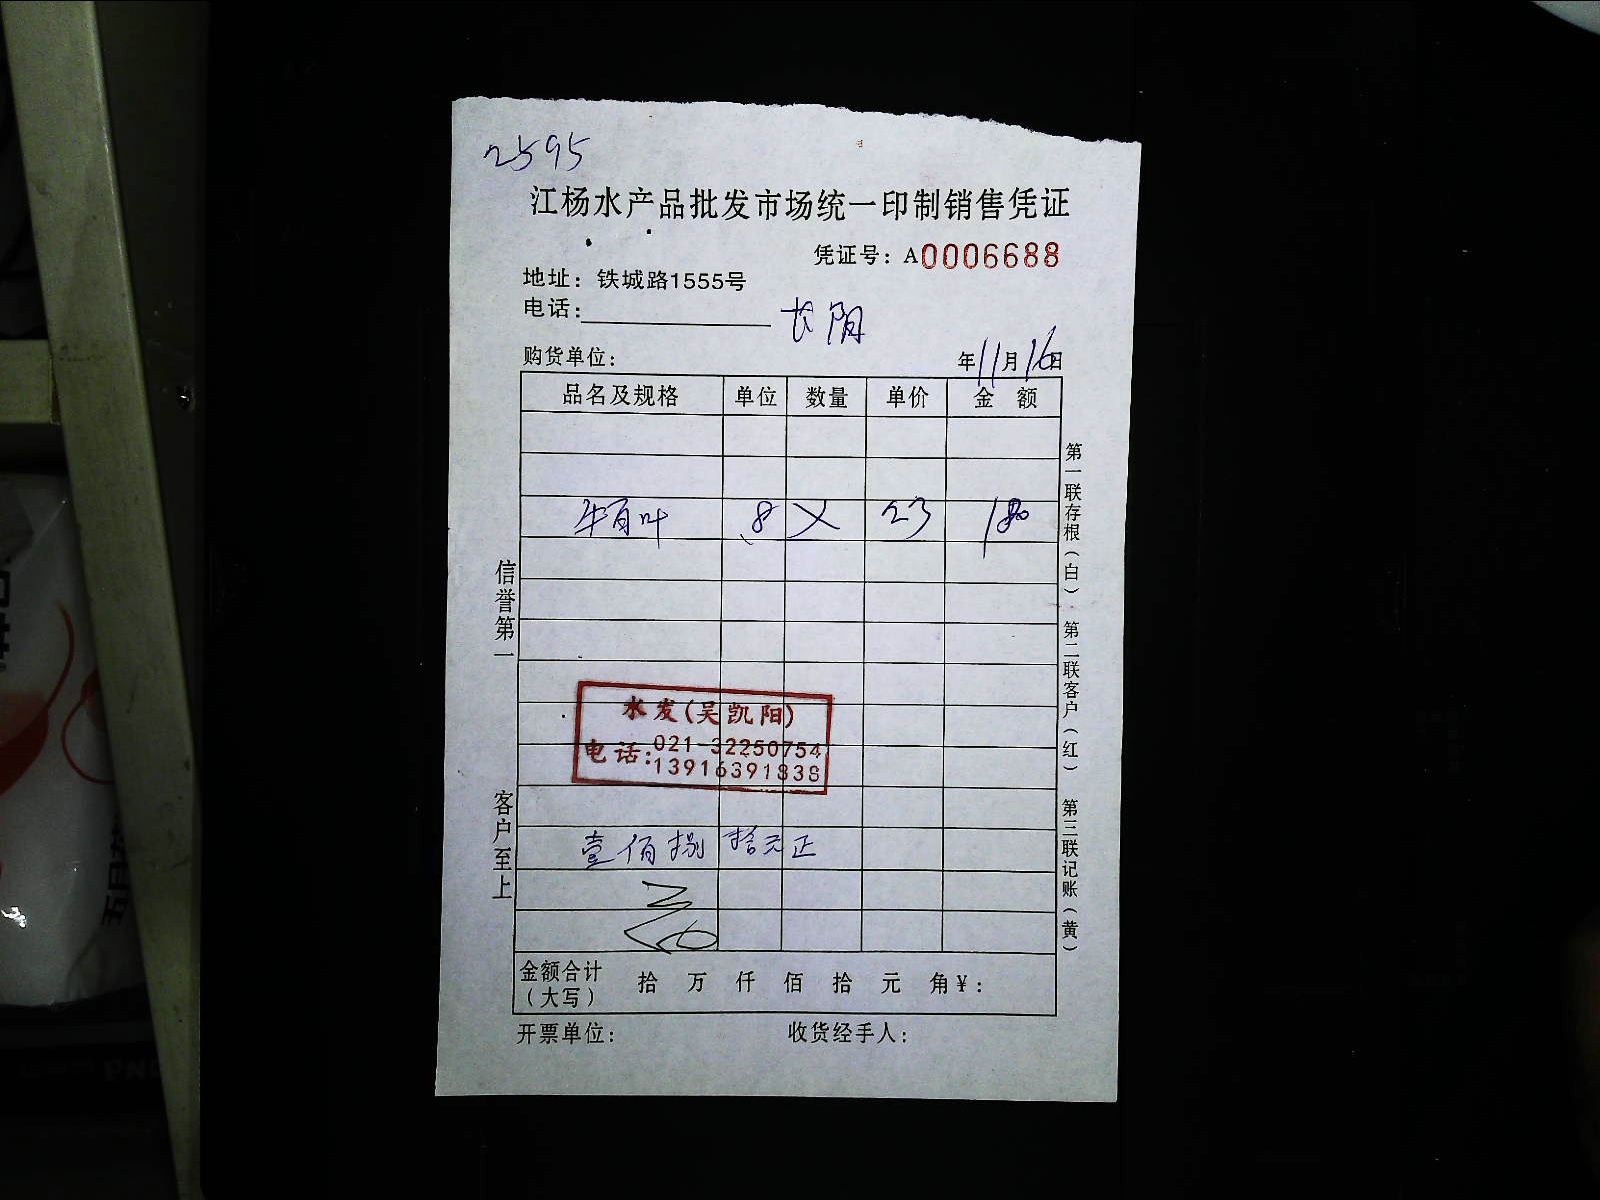 2595
江杨水产品批发市场统一印制销售凭证
凭证号：A0006688
地址：铁城路1555号
电话：
长阳
购货单位： 年11月16日
品名及规格 单位 数量 单价 金额
牛百叶 8 × 23 180
信誉第一
客户至上
第一联存根（白） 第二联客户（红） 第三联记账（黄）
水发（吴凯阳）
电话：021-32250754
13916391838
壹佰捌拾元正
金额合计（大写） 拾 万 仟 佰 拾 元 角￥：
开票单位： 收货经手人：